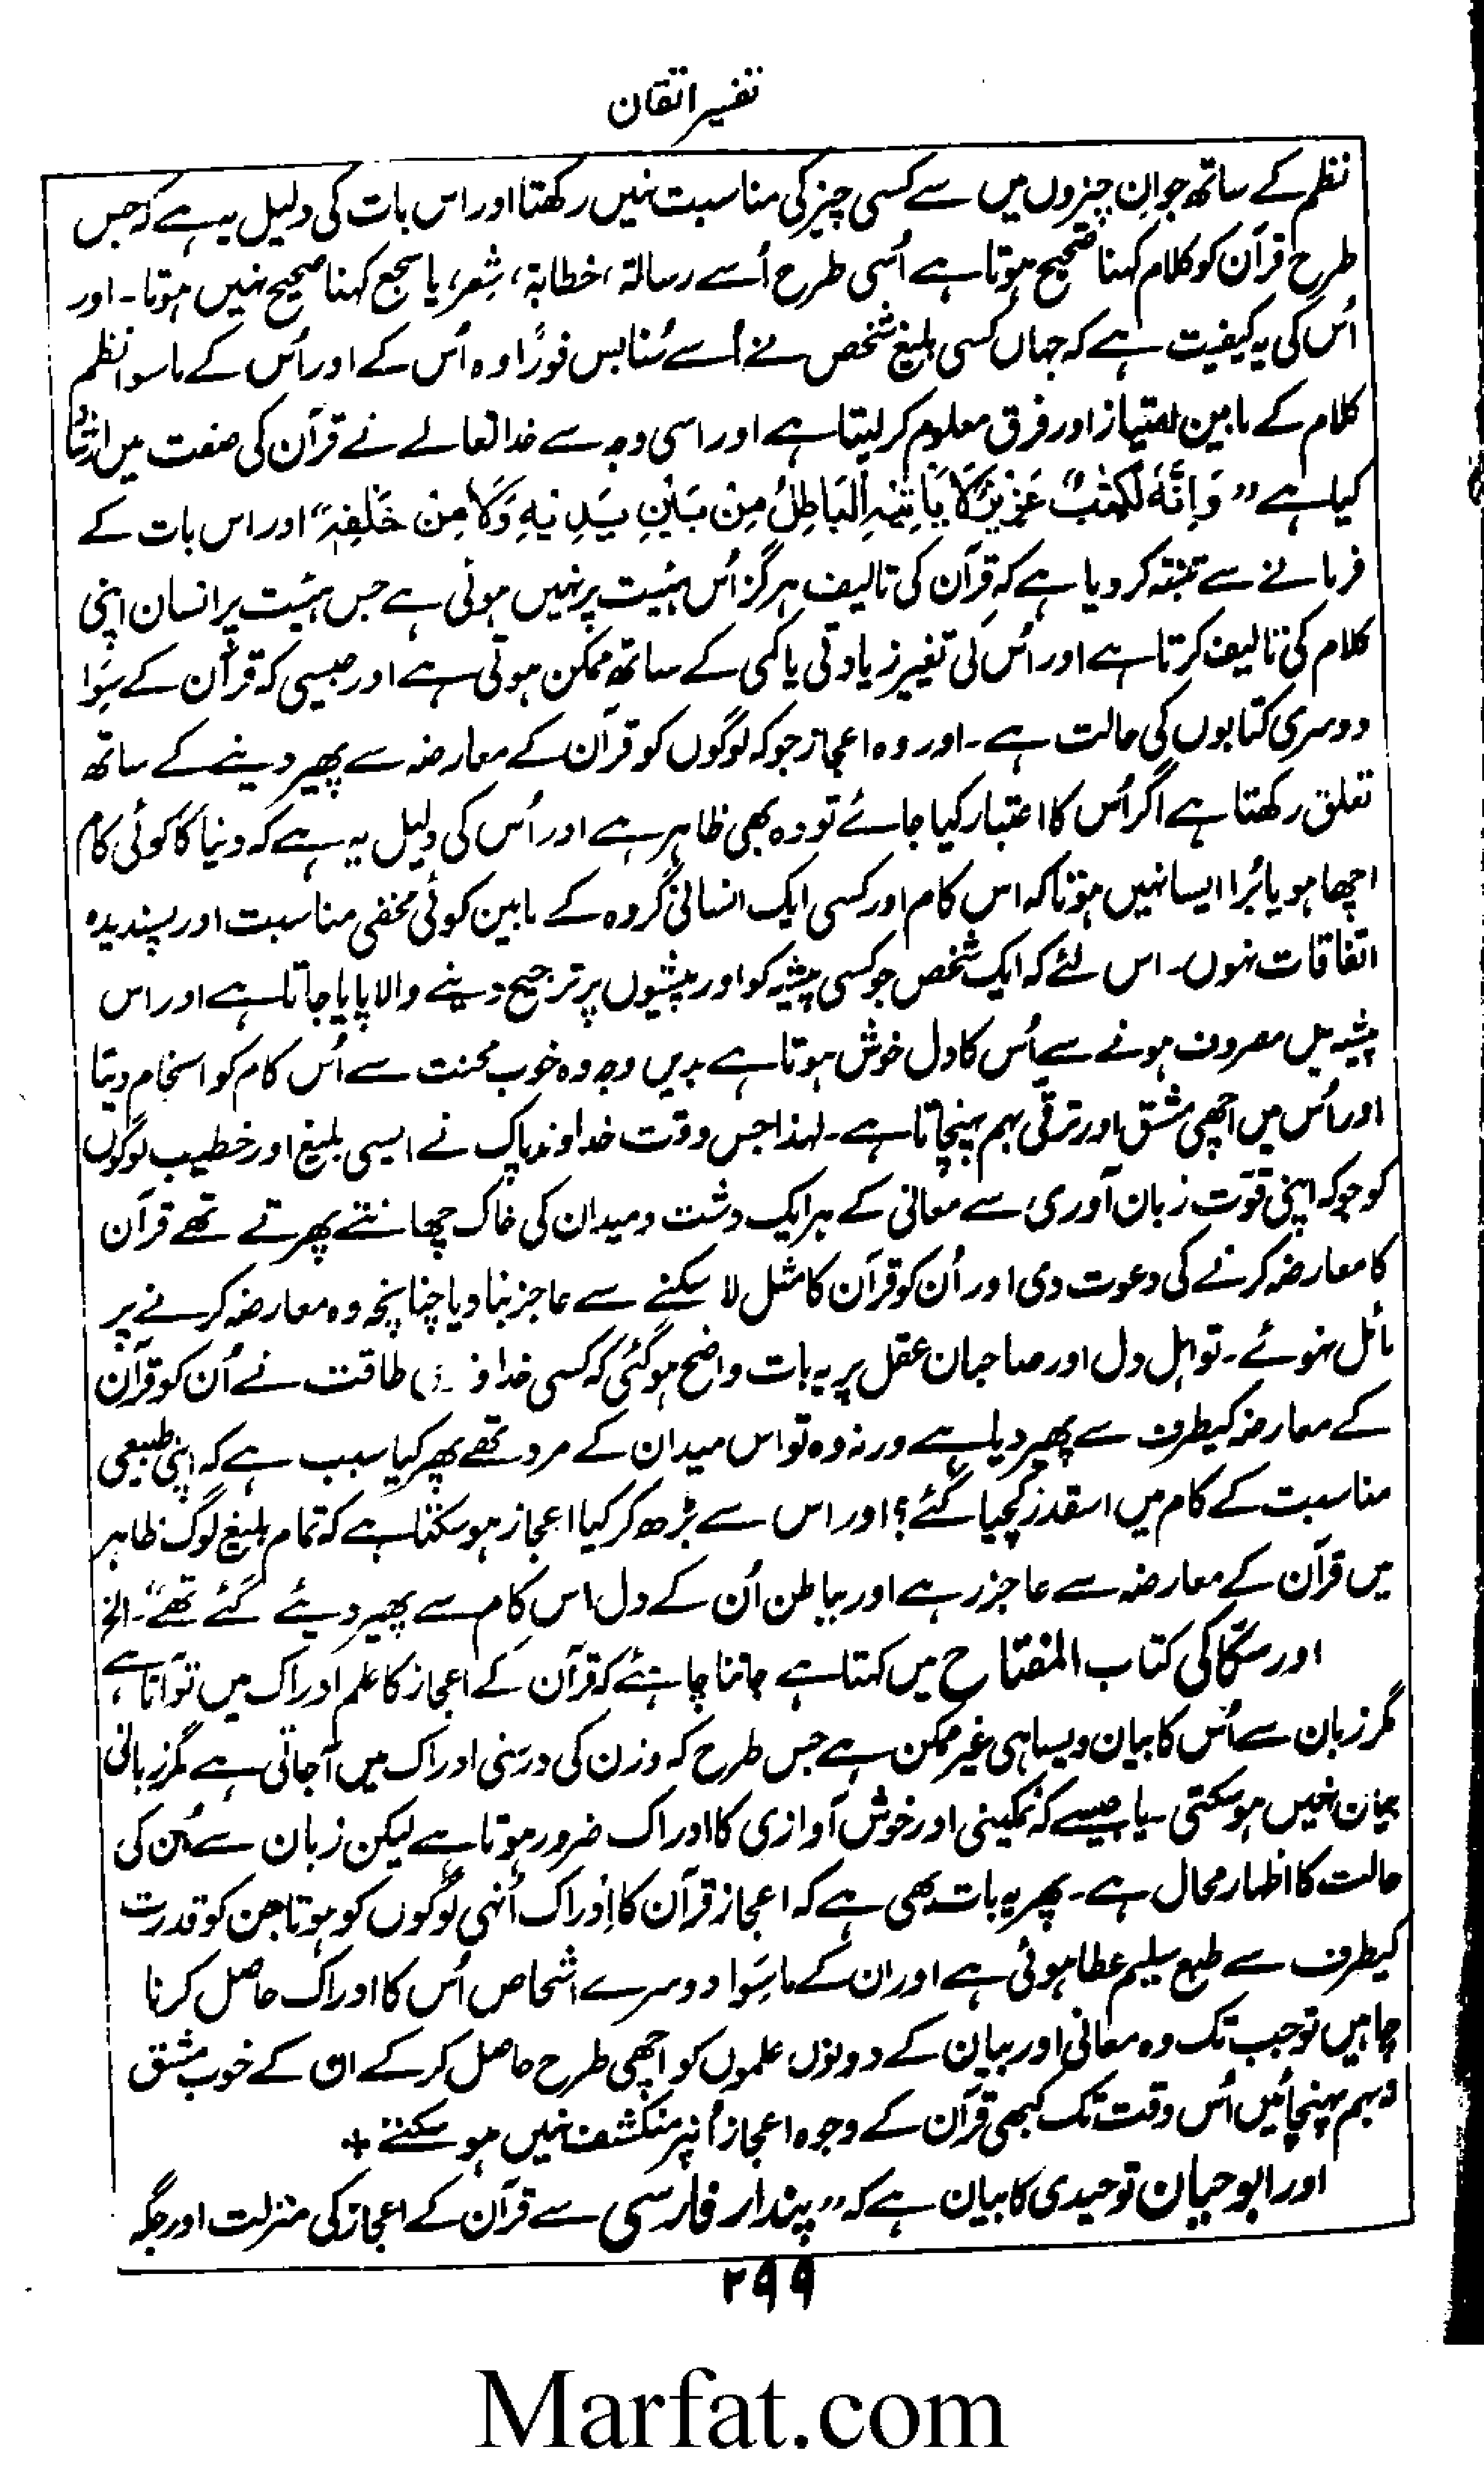 تفسیر اتقان
نظم کے ساتھ جو ان چیزوں میں سے کسی چیز کی مناسبت نہیں رکھتا اور اس بات کی دلیل یہ ہے کہ جس
طرح قرآن کو کلام کہنا صحیح ہوتا ہے اُسی طرح اُسے رسالۃ، خطابۃ، شِعر، یا سجع کہنا صحیح نہیں ہوتا۔ اور
اُس کی یہ کیفیت ہے کہ جہاں کسی بلیغ شخص نے اُسے سُنا بس فوراً وہ اُس کے اور اُس کے ماسوا نظم
کلام کے مابین امتیاز اور فرق معلوم کر لیتا ہے اور اسی وجہ سے خدا تعالے نے قرآن کی صفت میں ارشاد
کیا ہے ”وَاِنَّهٗ لَكِتٰبٌ عَزِيْزٌ لَا يَاْتِيْهِ الْبَاطِلُ مِنْ بَيْنِ يَدَيْهِ وَلَا مِنْ خَلْفِهٖ“ اور اس بات کے
فرمانے سے متنبہ کر دیا ہے کہ قرآن کی تالیف ہرگز اُس ہیئت پر نہیں ہوئی ہے جس ہیئت پر انسان اپنی
کلام کی تالیف کرتا ہے اور اُس کی تغییر زیادتی یا کمی کے ساتھ ممکن ہوتی ہے اور جیسی کہ قرآن کے سِوا
دوسری کتابوں کی حالت ہے۔ اور وہ اعجاز جو کہ لوگوں کو قرآن کے معارضہ سے پھیر دینے کے ساتھ
تعلق رکھتا ہے اگر اُس کا اعتبار کیا جائے تو وہ بھی ظاہر ہے اور اُس کی دلیل یہ ہے کہ دنیا کا کوئی کام
اچھا ہو یا بُرا ایسا نہیں ہوتا کہ اس کام اور کسی ایک انسانی گروہ کے مابین کوئی مخفی مناسبت اور پسندیدہ
اتفاقات نہوں۔ اس لئے کہ ایک شخص جو کسی پیشہ کو اور پیشوں پر ترجیح دینے والا پایا جاتا ہے اور اس
پیشہ میں مصروف ہونے سے اُس کا دل خوش ہوتا ہے بدیں وجہ وہ خوب محنت سے اُس کام کو انجام دیتا
اور اُس میں اچھی مشق اور ترقی بہم پہنچاتا ہے۔ لہذا جس وقت خداوند پاک نے ایسی بلیغ اور خطیب لوگوں
کو جو کہ اپنی قوّت زبان آوری سے معانی کے ہر ایک دشت و میدان کی خاک چھانتے پھرتے تھے قرآن
کا معارضہ کرنے کی دعوت دی اور اُن کو قرآن کا مثل لا سکنے سے عاجز بنا دیا چنانچہ وہ معارضہ کرنے پر
مائل نہوئے۔ تو اہل دل اور صاحبان عقل پر یہ بات واضح ہو گئی کہ کسی طاقت نے اُن کو قرآن
کے معارضہ کیطرف سے پھیر دیا ہے ورنہ وہ تو اس میدان کے مرد تھے پھر کیا سبب ہے کہ اپنی طبیعی
مناسبت کے کام میں اسقدر کچیا گئے؟ اور اس سے بڑھ کر کیا اعجاز ہو سکتا ہے کہ تمام بلیغ لوگ ظاہر
میں قرآن کے معارضہ سے عاجز رہے اور بباطن اُن کے دل اس کام سے پھیر دیئے گئے تھے“۔ الخ
اور سکّاکی کتاب المفتاح میں کہتا ہے جاننا چاہئے کہ قرآن کے اعجاز کا علم ادراک میں تو آتا ہے
مگر زبان سے اُس کا بیان ویسا ہی غیر ممکن ہے جس طرح کہ وزن کی درستی ادراک میں آجاتی ہے مگر زبانی
بیان نہیں ہو سکتی۔ یا جیسے کہ نمکینی اور خوش آوازی کا ادراک ضرور ہوتا ہے لیکن زبان سے اُن کی
حالت کا اظہار محال ہے۔ پھر یہ بات بھی ہے کہ اعجاز قرآن کا اِدراک اُنہی لوگوں کو ہوتا جن کو قدرت
کیطرف سے طبع سلیم عطا ہوئی ہے اور ان کے ماسِوا دوسرے اشخاص اُس کا ادراک حاصل کرنا
چاہیں تو جب تک وہ معانی اور بیان کے دونوں علموں کو اچھی طرح حاصل کر کے ان کے خوب مشق
و بہم پہنچائیں اُس وقت تک کبھی قرآن کے وجوہ اعجاز اُنپر منکشف نہیں ہو سکتے +
اور ابو حیان توحیدی کا بیان ہے کہ ”پندار فارسی سے قرآن کے اعجاز کی منزلت اور جگہ
۲۹۹
Marfat.com